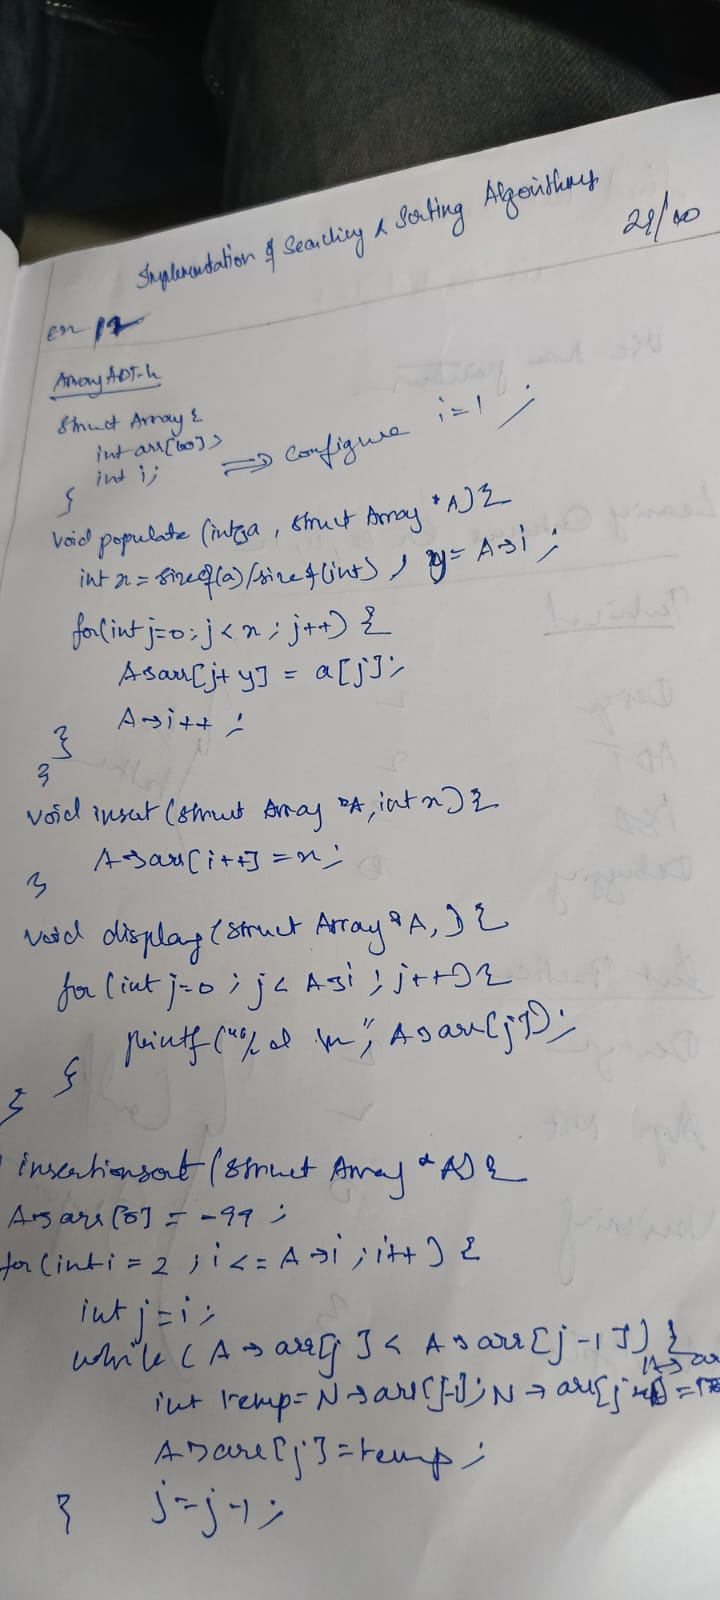 Implementation of Searching & Sorting Algorithms
29/10
ex 12
ArrayADT.h
Struct Array {
int arr[100];
int i;
⇒ Configure i=1;
}
Void populate (int *a, struct Array *A) {
int x = sizeof(a)/sizeof(int), y = A→i;
for(int j=0; j<x; j++) {
A→arr[j+y] = a[j];
A→i++;
}
}
void insert (struct Array *A, int x) {
A→arr[i++] = x;
}
void display (struct Array *A, ) {
for (int j=0; j< A→i; j++) {
printf("%d \n", A→arr[j]);
}
}
insertionsort (struct Array *A) {
A→arr[0] = -99;
for (int i = 2; i <= A→i; i++) {
int j=i;
while (A→arr[j] < A→arr[j-1]) {
int temp = N→arr[j-1]; N→arr[j
A→arr[j] = temp;
} j=j-1;